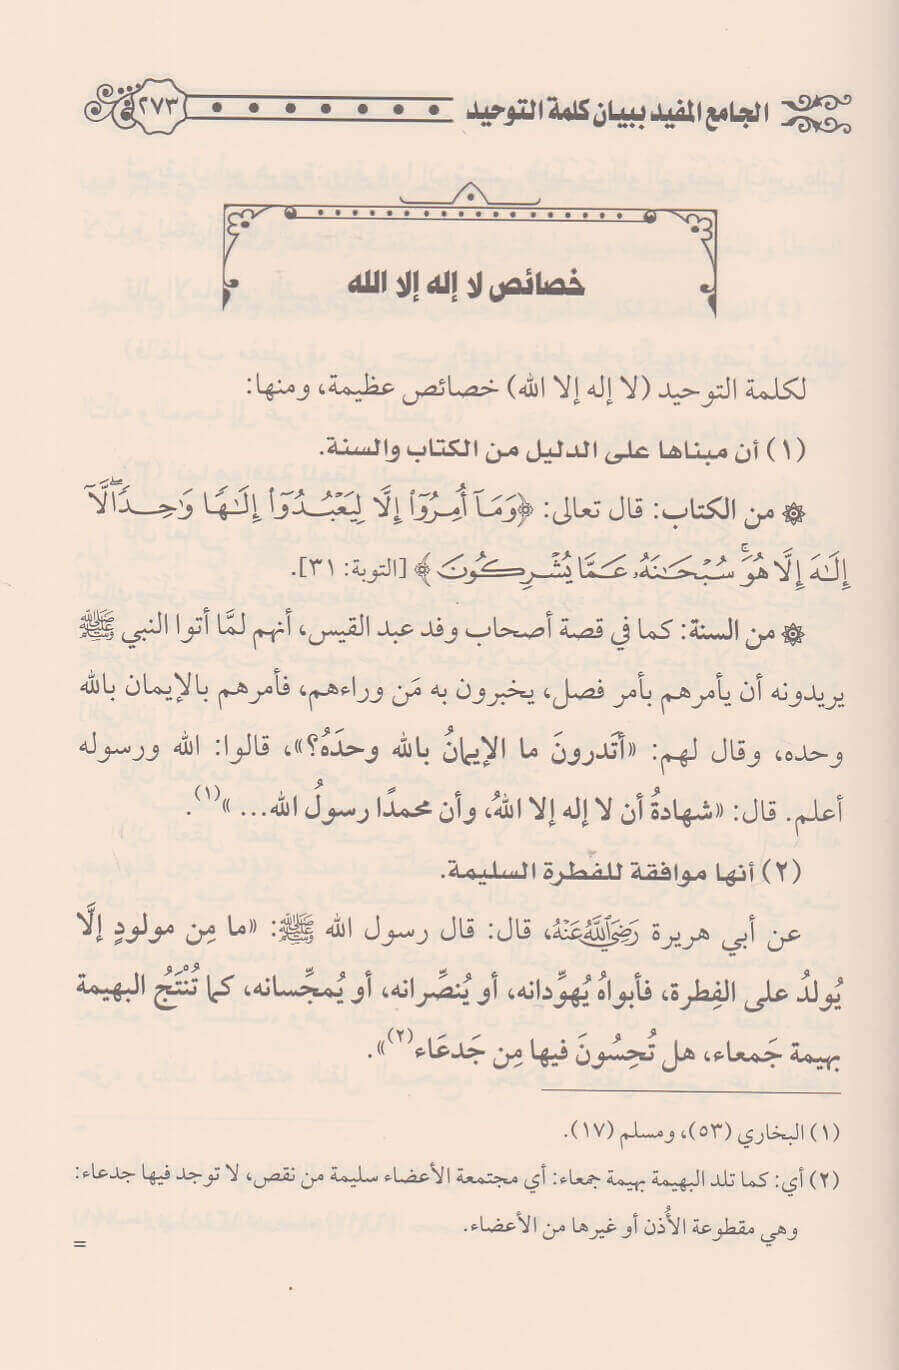 الجامع المفيد ببيان كلمة التوحيد ٢٧٣
خصائص لا إله إلا الله
لكلمة التوحيد (لا إله إلا الله) خصائص عظيمة، ومنها:
(١) أن مبناها على الدليل من الكتاب والسنة.
۞ من الكتاب: قال تعالى: ﴿وَمَآ أُمِرُوٓاْ إِلَّا لِيَعْبُدُوٓاْ إِلَٰهًا وَٰحِدًاۖ لَّآ
إِلَٰهَ إِلَّا هُوَۚ سُبْحَٰنَهُۥ عَمَّا يُشْرِكُونَ﴾ [التوبة: ٣١].
۞ من السنة: كما في قصة أصحاب وفد عبد القيس، أنهم لمَّا أتوا النبي ﷺ
يريدونه أن يأمرهم بأمر فصل، يخبرون به مَن وراءهم، فأمرهم بالإيمان بالله
وحده، وقال لهم: «أَتَدرونَ ما الإيمانُ بالله وحدَهُ؟»، قالوا: الله ورسوله
أعلم. قال: «شهادةُ أن لا إله إلا اللهُ، وأن محمدًا رسولُ الله... »(١).
(٢) أنها موافقة للفطرة السليمة.
عن أبي هريرة رَضِيَ ٱللَّهُ عَنْهُ، قال: قال رسول الله ﷺ: «ما مِن مولودٍ إلَّا
يُولدُ على الفِطرة، فأبواهُ يُهوِّدانه، أو يُنصِّرانه، أو يُمجِّسانه، كما تُنْتَجُ البهيمة
بهيمة جَمعاء، هل تُحِسُونَ فيها مِن جَدعَاء(٢)».
(١) البخاري (٥٣)، ومسلم (١٧).
(٢) أي: كما تلد البهيمة بهيمة جمعاء: أي مجتمعة الأعضاء سليمة من نقص، لا توجد فيها جدعاء:
وهي مقطوعة الأُذن أو غيرها من الأعضاء.
=